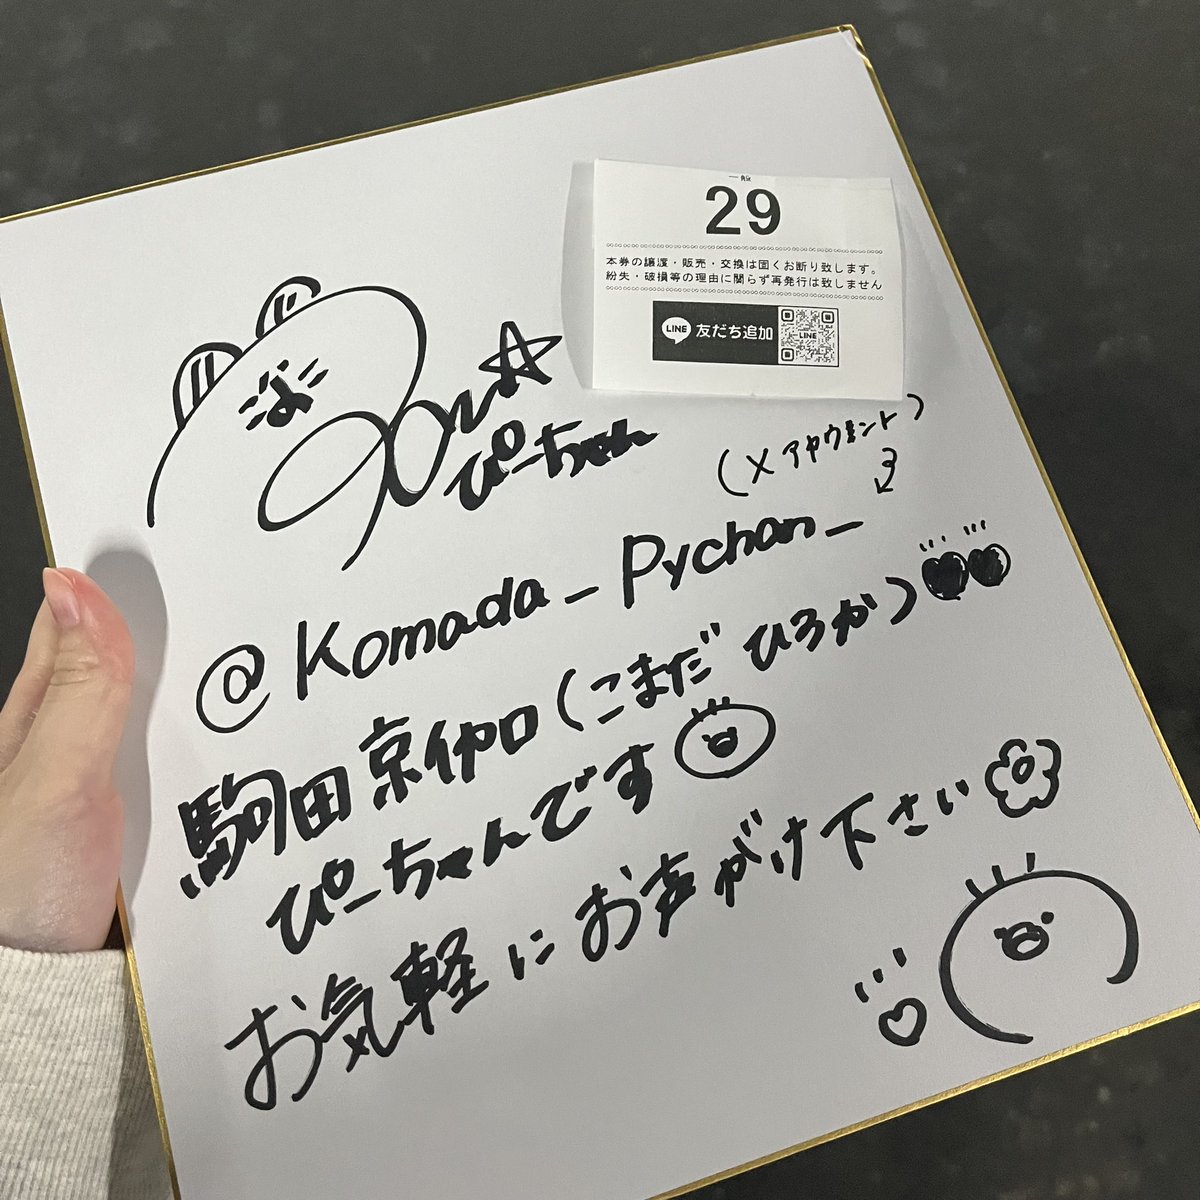 一般
29
本券の譲渡・販売・交換は固くお断り致します。
紛失・破損等の理由に関らず再発行は致しません
LINE 友だち追加
LINE
ぴーちゃん
(Xアカウント)
@Komada_Pychan_
駒田京伽(こまだ ひろか)
ぴーちゃんです
お気軽にお声がけ下さい